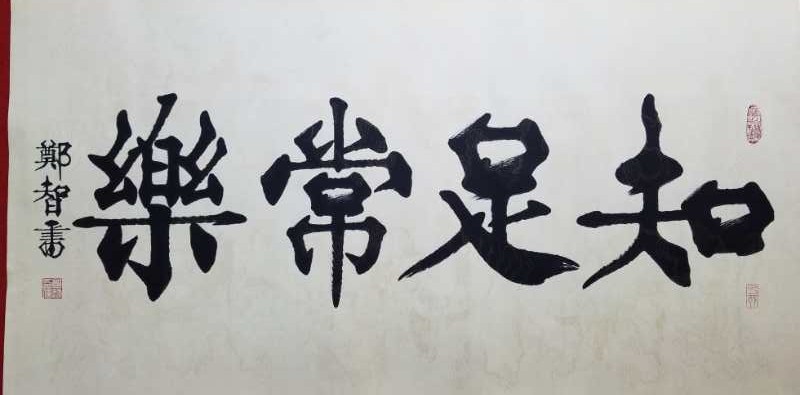 知足常樂
鄭智書